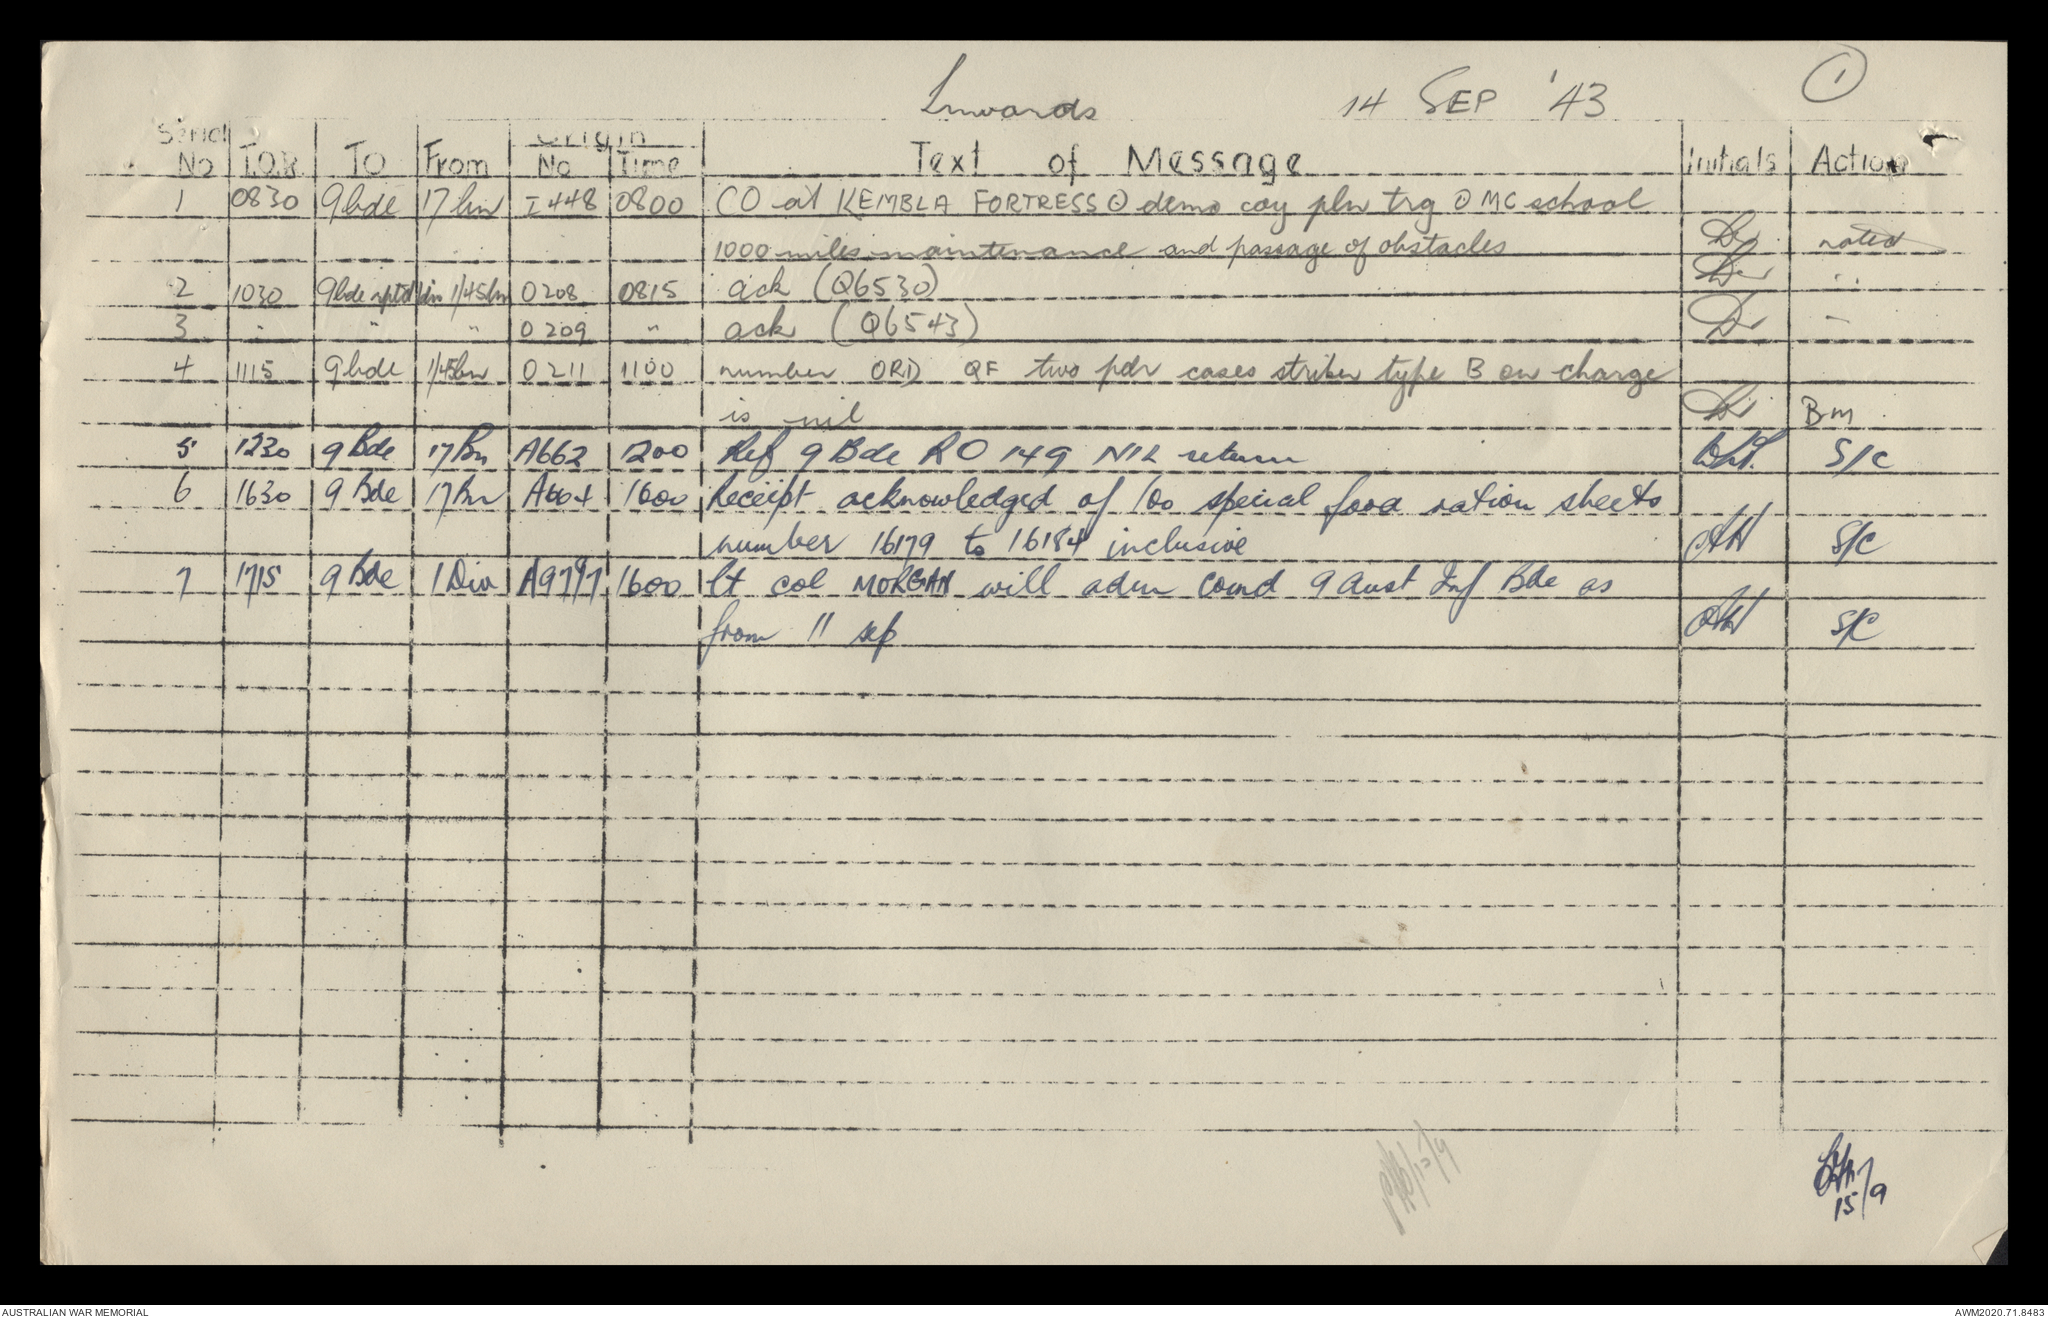 Inwards 14 SEP '43 1
Serial Origin
No T.O.R. To From No Time Text of Message Initials Action
1 0830 9 bde 17 bn I 448 0800 CO at KEMBLA FORTRESS ⊙ demo coy pln trg ⊙ MC school
1000 miles maintenance and passage of obstacles noted
2 1030 9 bde rptd div 1/45 bn O 208 0815 ack (Q6530) "
3 " " " O 209 " ack (Q6543) "
4 1115 9 bde 1/45bn O 211 1100 number ORD QF two pdr cases striker type B on charge
is nil Bm
5 1230 9 Bde 17 Bn A662 1200 Ref 9 Bde RO 149 NIL return S/C
6 1630 9 Bde 17 Bn A664 1600 Receipt acknowledged of 100 special food ration sheets
number 16179 to 16184 inclusive S/C
7 1715 9 Bde 1 Div A9797 1600 Lt col MORGAN will adm comd 9 Aust Inf Bde as
from 11 sep S/C
15/9
AUSTRALIAN WAR MEMORIAL AWM2020.71.8483